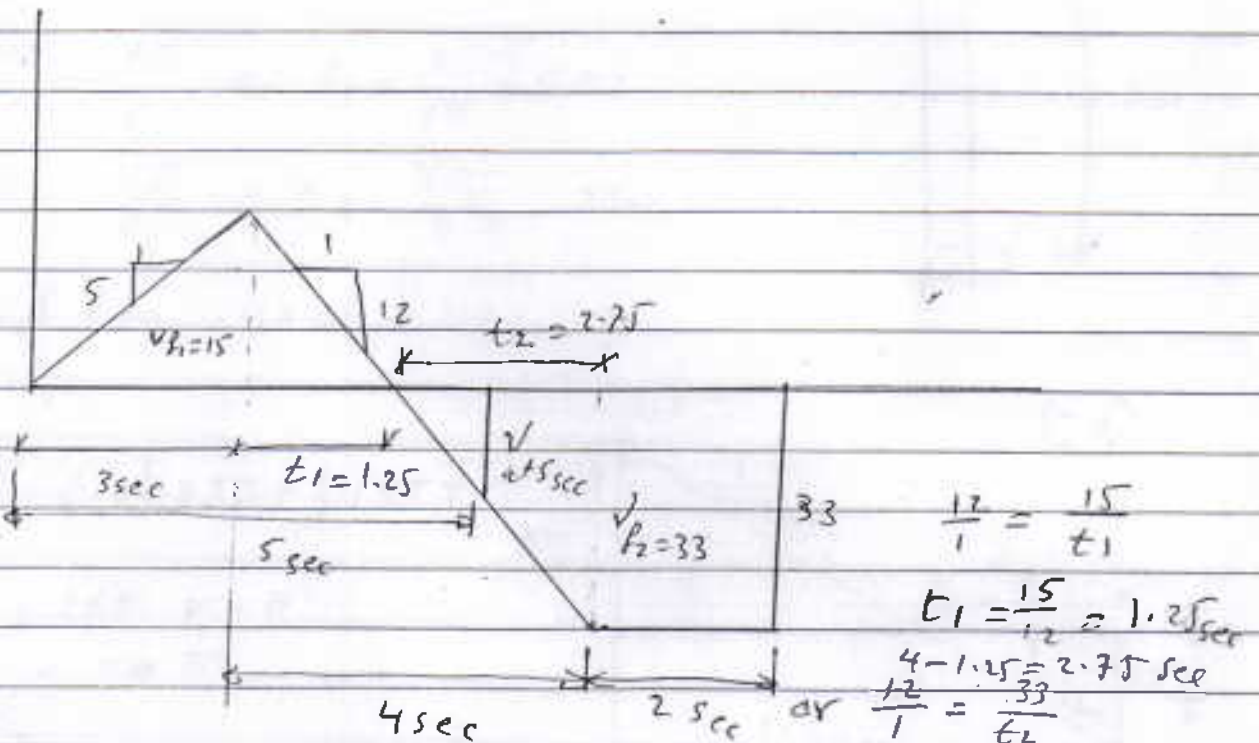 1
1
5
12
Vf₁=15
t₂ = 2.75
3sec
t₁ = 1.25
V
at 5sec
5sec
Vf₂=33
33
12/1 = 15/t₁
t₁ = 15/12 = 1.25sec
4-1.25=2.75 sec
4sec
2 sec
or 12/1 = 33/t₂